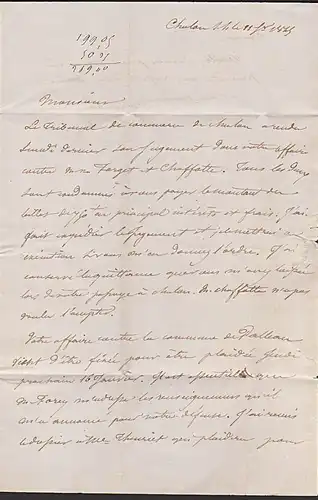 Chalon
199,05
Monsieur
Le Tribunal de commerce de Chalon a rendu
dernier son jugement dans votre affaire
contre M. Forget et Chaffotte. Tous les deux
sont condamnés à vous payer le montant des
billets en principal intérêts et frais. J'ai
fait le jugement et je mettrai à
exécution si vous m'en donnez l'ordre. J'ai
conservé la quittance que vous m'avez
lors de votre passage à Chalon. M. Chaffotte n'a pas
voulu l'accepter.
Votre affaire contre la commune de
vient d'être fixée pour être plaidée Jeudi
prochain 16 Janvier.
M. les renseignements qu'il
m'a annoncé pour votre défense. J'ai remis
le dossier à Me qui plaidera pour